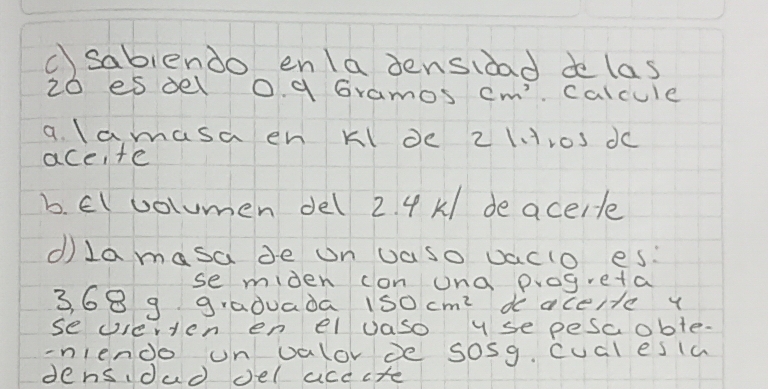 c) Sabiendo en la densidad de las
20 es del 0.9 Gramos cm³. Calcule
a. la masa en Kl de 2 litros de
aceite
b. El volumen del 2.4 kl de aceite
d) La masa de un vaso vacio es:
se miden con una progreta
3,68 g graduada 150 cm² de aceite y
se vierten en el vaso y se pesa obte-
-niendo un valor de 505g. Cual es la
densidad del acecte